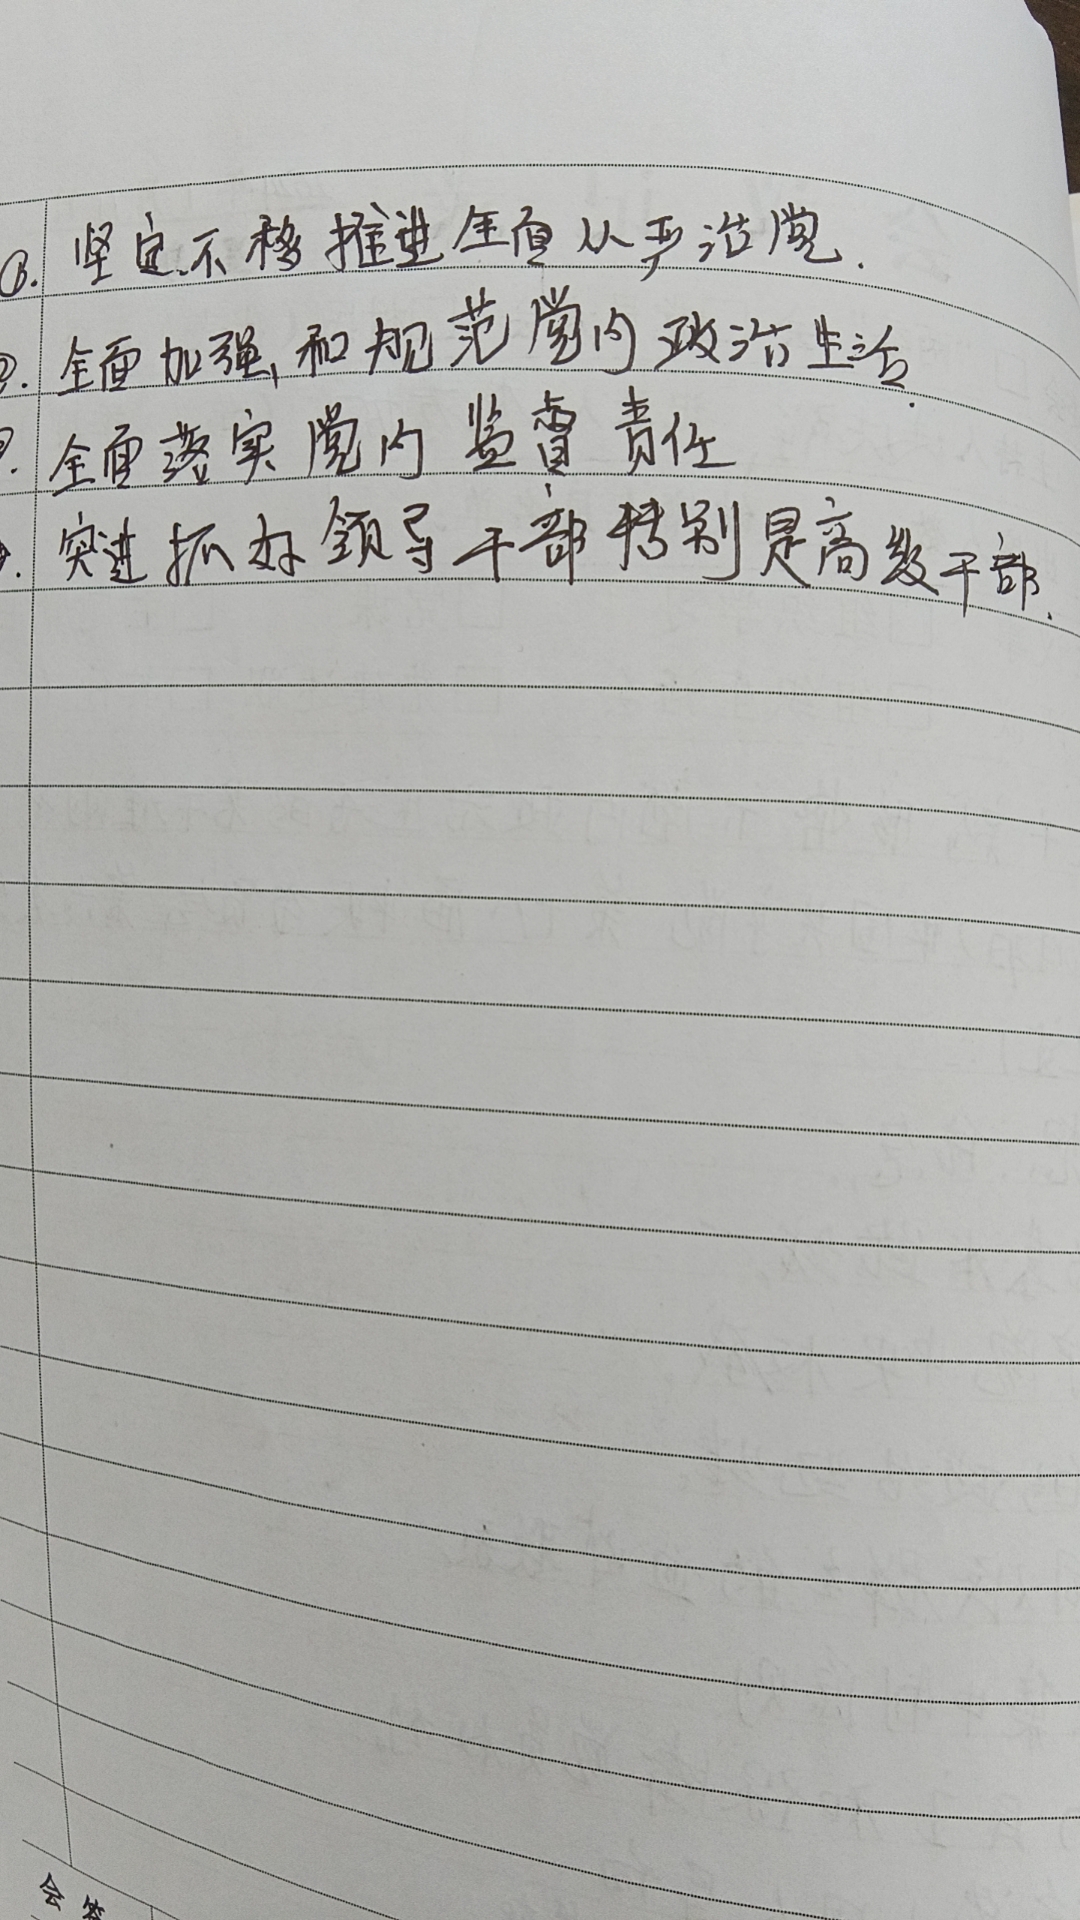 ①. 坚定不移推进全面从严治党.
②. 全面加强,和规范党内政治生活.
全面落实党内监督责任
突进抓好领导干部特别是高级干部.
会签